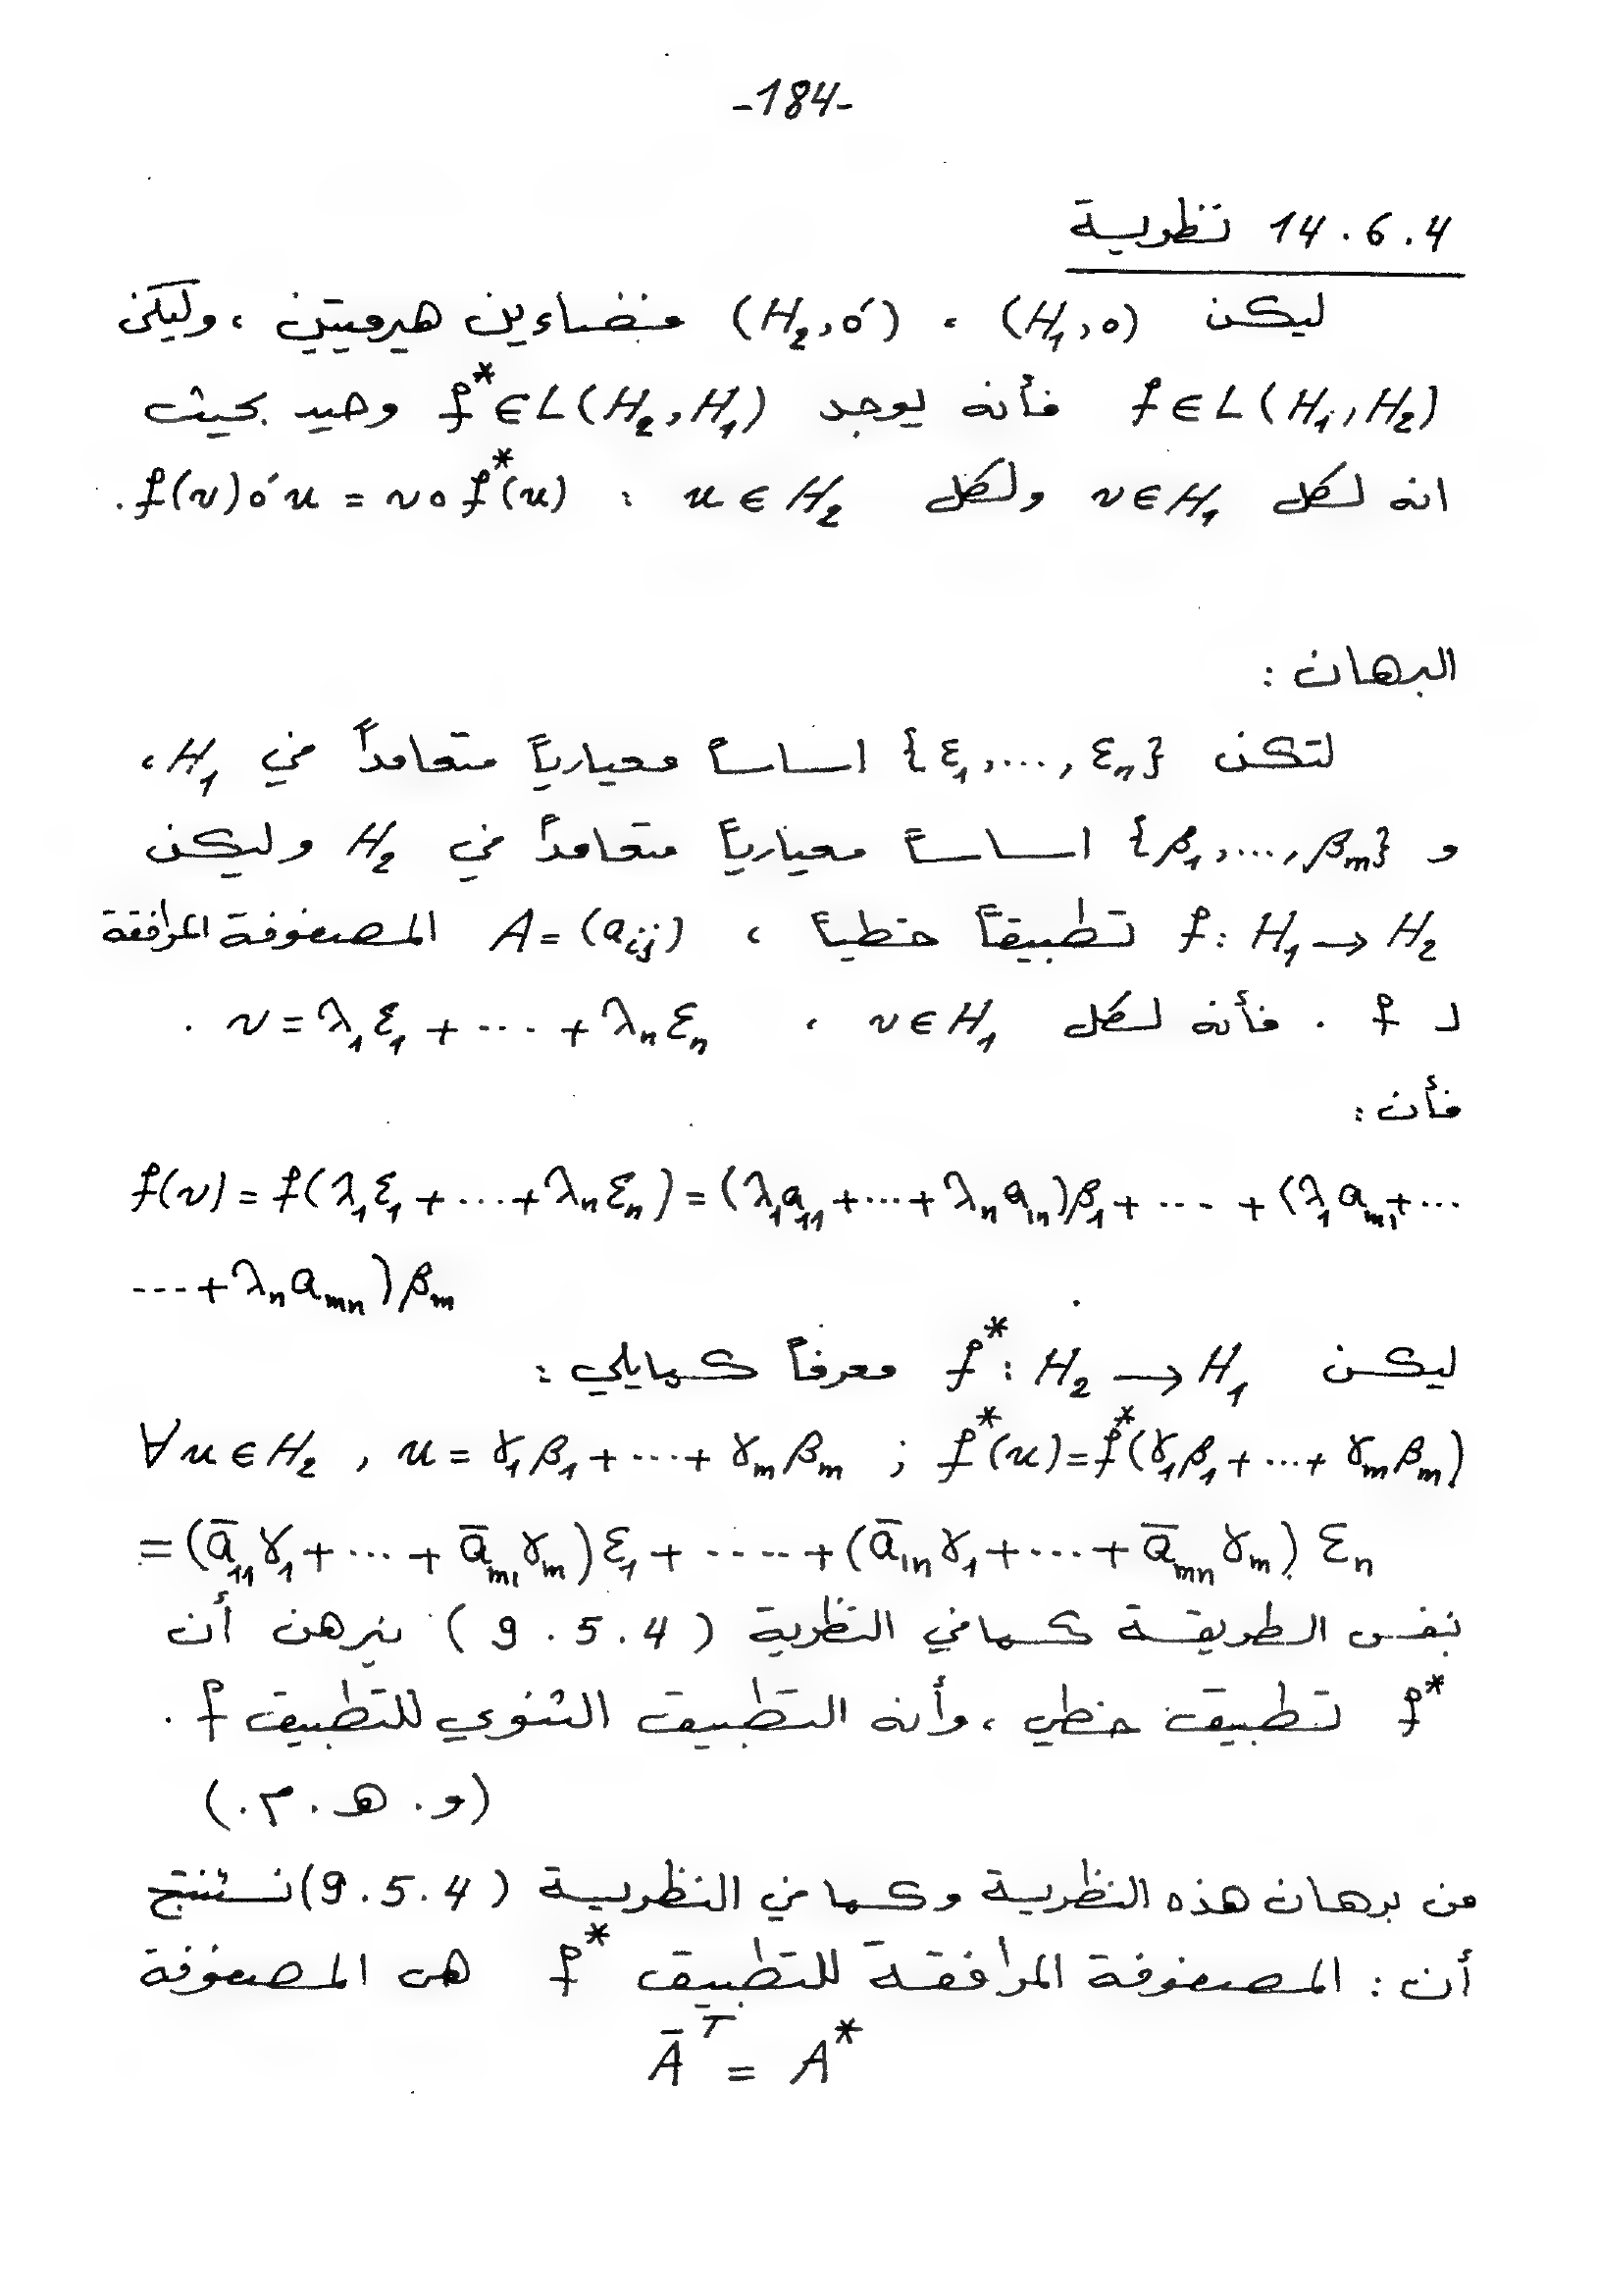 -184-
14.6.4 نظرية
ليكن (H₁,o) ، (H₂,o′) فضاءين هيرميتيين ، وليكن
f∈L(H₁,H₂) فأنه يوجد f*∈L(H₂,H₁) وحيد بحيث
انه لكل v∈H₁ ولكل u∈H₂ : f(v)o′u = v o f*(u) .
البرهان :
لتكن {ε₁,...,εₙ} اساساً معيارياً متعامداً في H₁ ،
و {β₁,...,βₘ} اساساً معيارياً متعامداً في H₂ وليكن
f: H₁→H₂ تطبيقاً خطياً ، A=(aᵢⱼ) المصفوفة المرافقة
لـ f . فأنه لكل v∈H₁ ، v = λ₁ε₁ + ---- + λₙεₙ .
فأن :
f(v) = f(λ₁ε₁+...+λₙεₙ) = (λ₁a₁₁+...+λₙa₁ₙ)β₁+ ---- + (λ₁aₘ₁+...
---+λₙaₘₙ)βₘ
ليكن f*: H₂→H₁ معرفاً كمايلي :
∀u∈H₂ , u = γ₁β₁+----+γₘβₘ ; f*(u)=f*(γ₁β₁+...+γₘβₘ)
=(ā₁₁γ₁+...+āₘ₁γₘ)ε₁+ ----- +(ā₁ₙγ₁+...+āₘₙγₘ)εₙ
بنفس الطريقة كمافي النظرية (9.5.4) نبرهن أن
f* تطبيق خطي ، وأنه التطبيق الثنوي للتطبيق f .
(و. هـ. م.)
من برهان هذه النظرية وكما في النظرية (9.5.4) نستنتج
أن : المصفوفة المرافقة للتطبيق f* هي المصفوفة
Āᵀ = A*